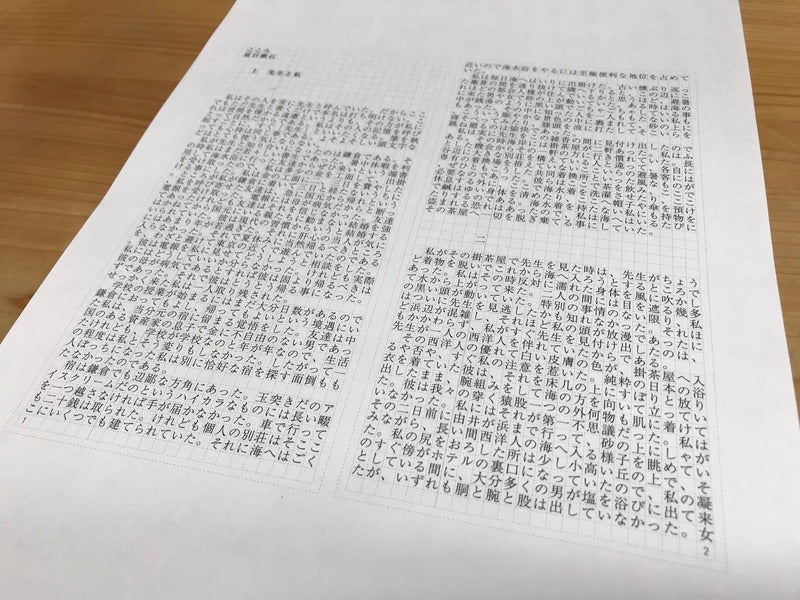 こころ
夏目漱石
上　先生と私
一
私はその人を常に先生と呼んでいた。だからここ
でもただ先生と書くだけで本名は打ち明けない。こ
れは世間を憚かる遠慮というよりも、その方が私に
とって自然だからである。私はその人の記憶を呼び
起すごとに、すぐ「先生」といいたくなる。筆を執
っても心持は同じ事である。よそよそしい頭文字な
どはとても使う気にならない。
私が先生と知り合いになったのは鎌倉である。そ
の時私はまだ若々しい書生であった。暑中休暇を利
用して海水浴に行った友達からぜひ来いという端書
を受け取ったので、私は多少の金を工面して、出掛
ける事にした。私は金の工面に二、三日を費やした。
ところが私が鎌倉に着いて三日と経たないうちに、
私を呼び寄せた友達は、急に国元から帰れという電
報を受け取った。電報には母が病気だからと断って
あったけれども友達はそれを信じなかった。友達は
かねてから国元にいる親たちに勧まない結婚を強い
られていた。彼は現代の習慣からいうと結婚するに
はあまり年が若過ぎた。それに肝心の当人が気に入
らなかった。それで夏休みに当然帰るべきところを、
わざと避けて東京の近くで遊んでいたのである。彼
は電報を私に見せてどうしようと相談をした。私に
はどうしていいか分らなかった。けれども実際彼の
母が病気であるとすれば彼は固より帰るべきはずで
あった。それで彼はとうとう帰る事になった。せっ
かく来た私は一人取り残された。
学校の授業が始まるにはまだ大分日数があるので
鎌倉におってもよし、帰ってもよいという境遇にい
た私は、当分元の宿に留まる覚悟をした。友達は中
国のある資産家の息子で金に不自由のない男であっ
たけれども、学校が学校なのと年が年なので、生活
の程度は私とそう変りもしなかった。したがって一
人ぼっちになった私は別に恰好な宿を探す面倒もも
たなかったのである。
宿は鎌倉でも辺鄙な方角にあった。玉突きだのア
イスクリームだのというハイカラなものには長い畷
を一つ越さなければ手が届かなかった。車で行って
も二十銭は取られた。けれども個人の別荘はそここ
こにいくつでも建てられていた。それに海へはごく
1
近いので海水浴をやるには至極便利な地位を占めて
いた。
私は毎日海へはいりに出掛けた。古い燻ぶり返っ
た藁葺の間を通り抜けて磯へ下りると、この辺にこ
れほどの都会人種が住んでいるかと思うほど、避暑
に来た男や女で砂の上が動いている事もあった。あ
る時は海の中が銭湯のように黒い頭でごちゃごちゃ
している事もあった。その中に知った人を一人もも
たない私も、こういう賑やかな景色の中に裹まれて、
砂の上に寝そべってみたり、膝頭を波に打たしてそ
こいらを跳ね廻るのは愉快であった。
私は実に先生をこの雑沓の間に見付け出したので
ある。その時海岸には掛茶屋が二軒あった。私はふ
とした機会からその一軒の方に行き慣れていた。長
谷辺に大きな別荘を構えている人と違って、各自に
専有の着換場を拵えていないここいらの避暑客には、
ぜひともこうした共同着換所といった風なものが必
要なのであった。彼らはここで茶を飲み、ここで休
息する外に、ここで海水着を洗濯させたり、ここで
鹹はゆい身体を清めたり、ここへ帽子や傘を預けた
りするのである。海水着を持たない私にも持物を盗
まれる恐れはあったので、私は海へはいるたびにそ
の茶屋へ一切を脱ぎ棄てる事にしていた。
二
私がその掛茶屋で先生を見た時は、先生がちょう
ど着物を脱いでこれから海へ入ろうとするところで
あった。私はその時反対に濡れた身体を風に吹かし
て水から上がって来た。二人の間には目を遮る幾多
の黒い頭が動いていた。特別の事情のない限り、私
はついに先生を見逃したかも知れなかった。それほ
ど浜辺が混雑し、それほど私の頭が放漫であったに
もかかわらず、私がすぐ先生を見付け出したのは、
先生が一人の西洋人を伴れていたからである。
その西洋人の優れて白い皮膚の色が、掛茶屋へ入
るや否や、すぐ私の注意を惹いた。純粋の日本の浴
衣を着ていた彼は、それを床几の上にすぽりと放り
出したまま、腕組みをして海の方を向いて立ってい
た。彼は我々の穿く猿股一つの外何物も肌に着けて
いなかった。私にはそれが第一不思議だった。私は
その二日前に由井が浜まで行って、砂の上にしゃが
みながら、長い間西洋人の海へ入る様子を眺めてい
た。私の尻をおろした所は少し小高い丘の上で、そ
のすぐ傍がホテルの裏口になっていたので、私の凝
としている間に、大分多くの男が塩を浴びに出て来
たが、いずれも胴と腕と股は出していなかった。女
2